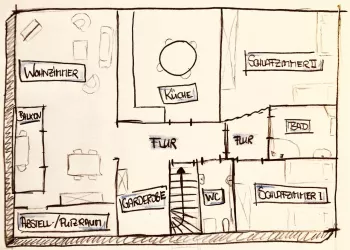 WOHNZIMMER
KÜCHE
SCHLAFZIMMER II
BALKON
FLUR
FLUR
BAD
ABSTELL-/PUTZRAUM
GARDEROBE
WC
SCHLAFZIMMER I